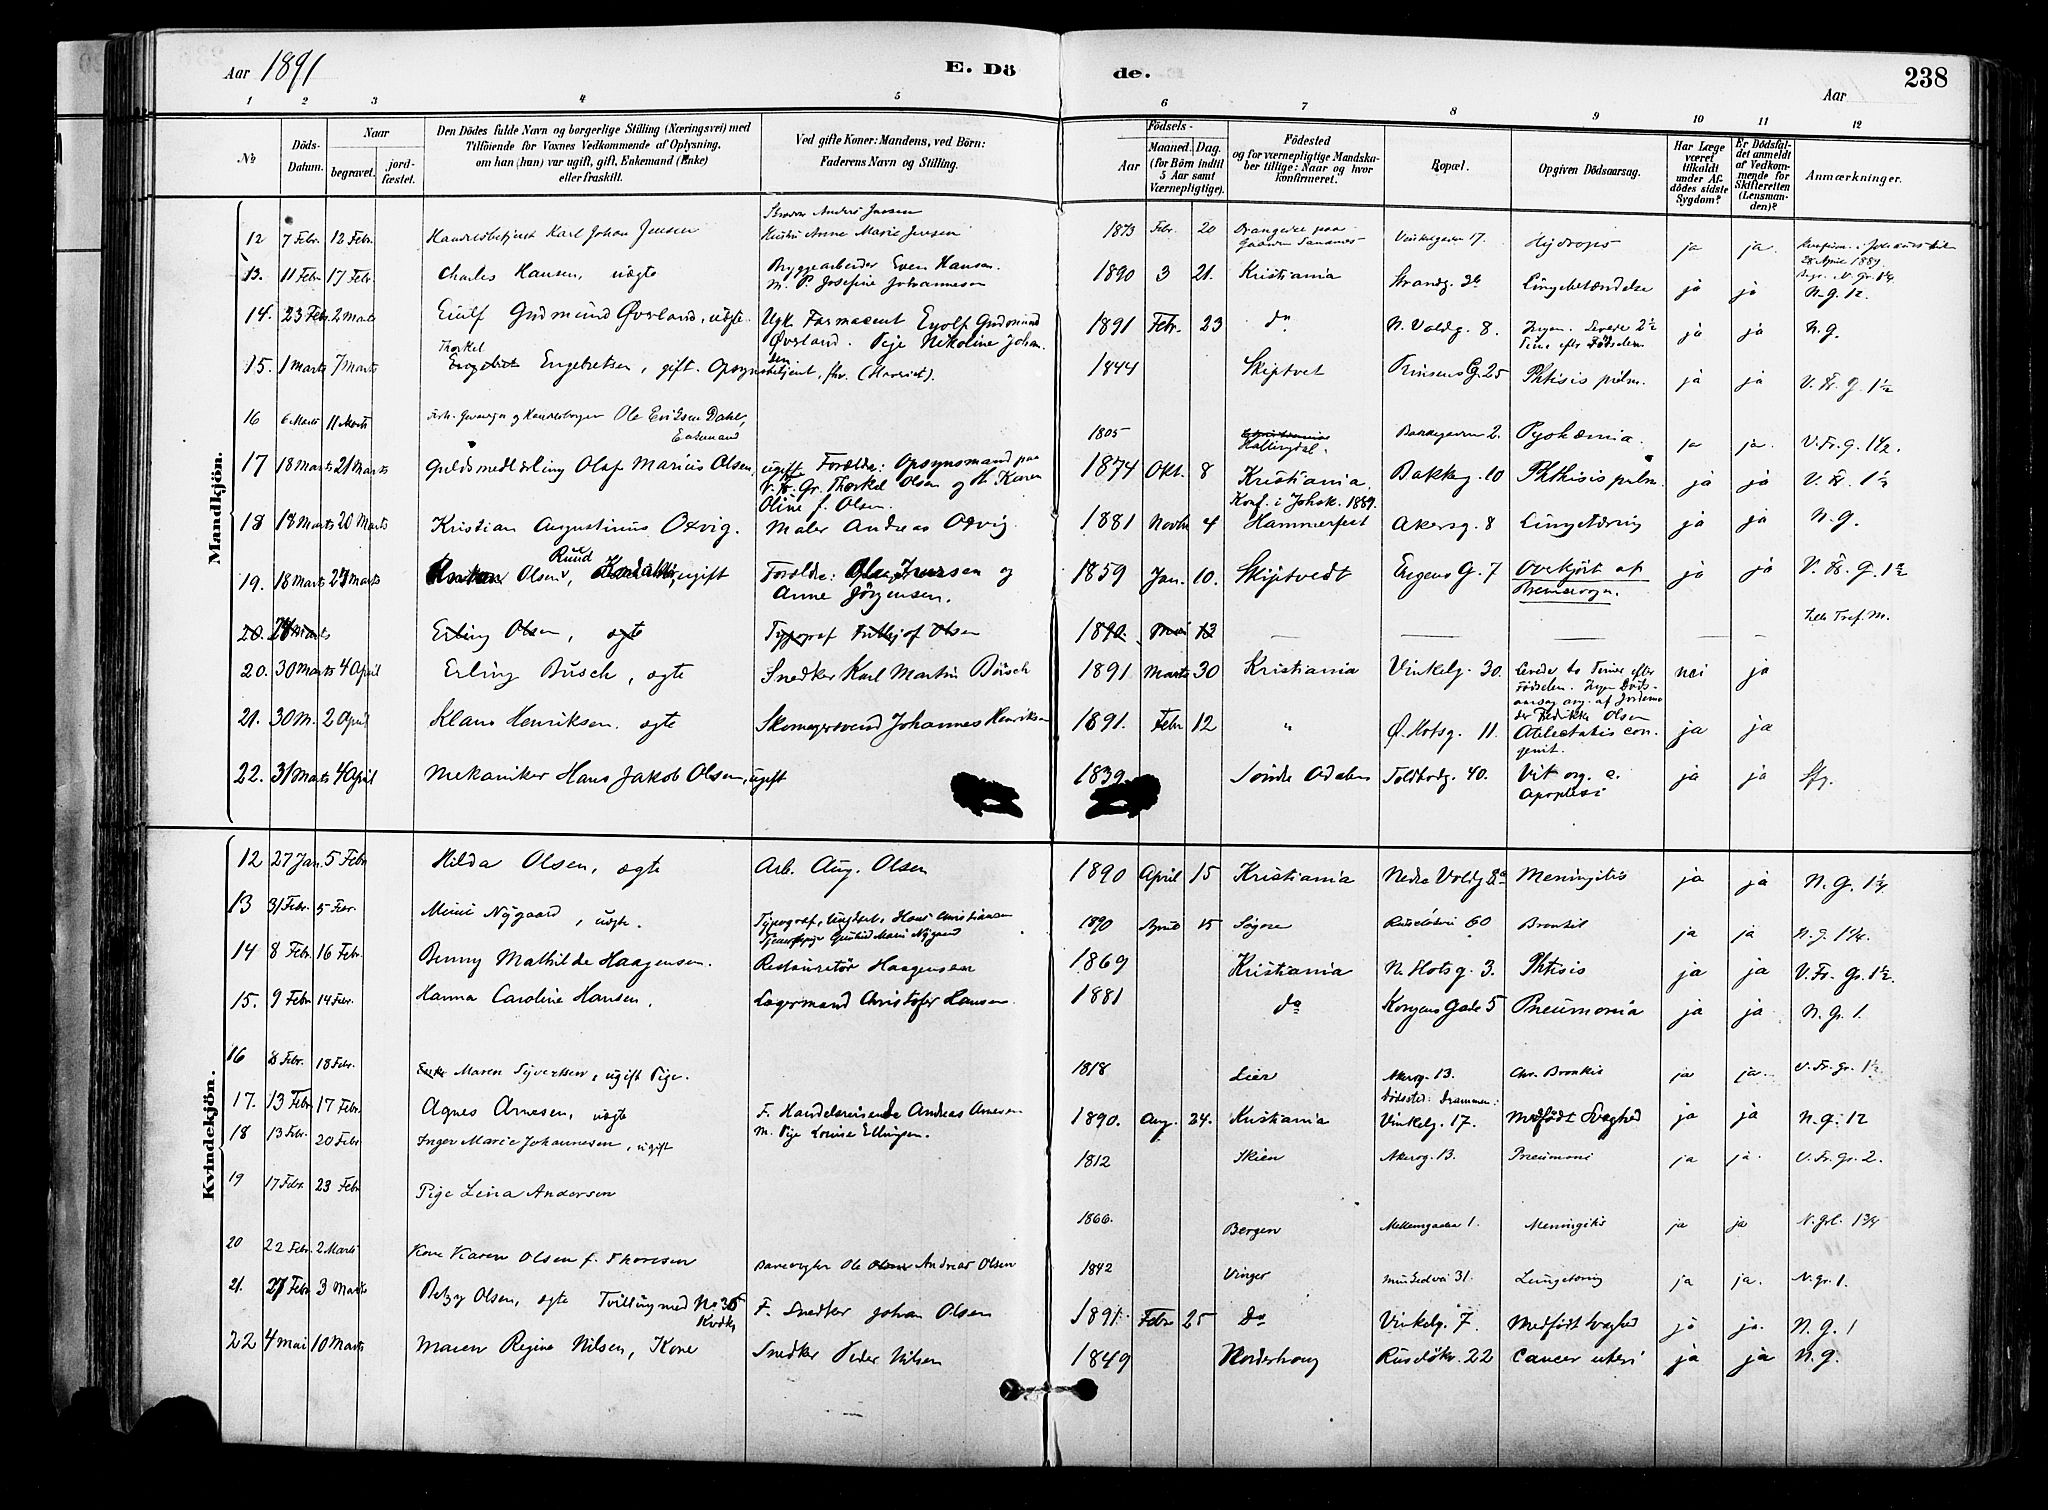 Aar 1891
E. Dö
de.
Aar
238
1 2 3 4 5 6 7 8 9 10 11 12
No
Döds-Datum.
Naar
begravet.
jord-fæstet.
Den Dödes fulde Navn og borgerlige Stilling (Næringsvei) med
Tilföiende for Voxnes Vedkommende af Oplysning,
om han (hun) var ugift, gift, Enkemand (Enke)
eller fraskilt.
Ved gifte Koner: Mandens, ved Börn:
Faderens Navn og Stilling.
Födsels-
Aar
Maaned. Dag.
(for Börn indtil
5 Aar samt
Værnepligtige).
Födested
og for værnepligtige Mandska-
ber tillige: Naar og hvor
konfirmeret.
Bopæl.
Opgiven Dödsaarsag.
Har Læge
været
tilkaldt
under Af-
dödes sidste
Sygdom?
Er Dödsfal-
det anmeldt
af Vedkom-
mende for
Skifteretten
(Lensman-
den)?
Anmærkninger.
Mandkjön.
12 7 Febr. 12 Febr. Handelsbetjent Karl Johan Jensen Anders Jensen
Hustru Anne Marie Jensen 1873 Febr. 20 Vinkelgaden 17. Hydrops ja ja.
28 April 1889.
13. 11 Febr 17 Febr. Charles Hansen, uægte Byggearbeider Even Hansen.
M. P. Josefine Johannesen 1890 3 21. Kristiania Strandg. 36 Lungebetændelse ja ja N.G. 12.
14. 23 Febr 2 Marts Eyolf Gudmund Øvrland, uægte. Ugk. Farmaceut Eyolf Gudmund
Øvrland. Pige Nikoline Johan-
sen 1891 Febr. 23 do N. Voldg. 8. Ingen. Levede 2½
Time efter Fødselen ja ja N.G.
15. 1 Marts 7 Marts Thorkel
Engebret Engebretsen, gift. Opsynsbetjent, fhv. (Harriet). 1844 Skiptvet Prinsens G. 25 Phtisis pulm. ja ja V. Fr. G. 1½
16 6 Marts 11 Marts Ole Eriksen Dahl,
Enkemand 1805 Christiania
Hallingdal. Bakkegaden 2. Pyohæmia. ja ja. V. Fr. G. 1½.
17 18 Marts 21 Marts Guldsmedlærling Olaf Marius Olsen, ugift Forældre: Opsynsmand paa
V. Fr. Gr. Thorkel Olsen og H. Karen
Oline f. Olsen. 1874 Okt. 8 Kristiania.
Konf. i Johsk. 1889. Bakkeg. 10 Phthisis pulm. ja ja V. Fr. 1½
18 18 Marts 20 Marts Kristian Augustinus Oxvig. Maler Andreas Oxvig. 1881 Novbr 4 Hammerfest Akersg. 8 Lungetæring ja ja N.G.
19. 18 Marts 23 Marts Anton Olsen Ruud, ugift Forældre: Ole Iversen og
Anne Jörgensen. 1859 Jan. 10. Skiptvedt Engens G. 7 Overkjört af
Bremsevogn. ja ja V. Fr. G. 1½
20. Marts Erling Olsen, ægte Typograf Frithjof Olsen 1890. Mai 13 — — — — — Tref. M.
20. 30 Marts 4 April Erling Busch, ægte Snedker Karl Martin Busch 1891 Marts 30 Kristiania Vinkelg. 30. Levede to Timer efter
Födselen. Ingen Döds-
aarsag ang. af Jordemo-
der Fredrikke Olsen nei ja
21. 30 M. 2 April Klaus Henriksen. ægte Skomagersvend Johannes Henriksen 1891. Febr 12 " Ø. Slotsg. 11. Atelectatis con-
genit. ja ja
22. 31 Marts 4 April Mekaniker Hans Jakob Olsen, ugift 1839. Söndre Odalen Toldbodg. 40. Vit. org. c.
Apoplexi ja ja
Kvindekjön.
12 27 Jan. 5 Febr Hilda Olsen, ægte Arb. Aug. Olsen 1890 April 15 Kristiania Nedre Voldg 8 a Meningitis ja ja N.G. 1¼
13 31 Febr. 5 Febr. Mimi Nygaard, uægte. Typograf, Ungkarl, Hans Christiansen
Tjenestepige Marie Nygaard 1890 April 15 Ruselökvei 60 Bronkit ja ja N.G. 1¼.
14 8 Febr. 16 Febr. Benny Mathilde Haagensen. Restauratör Haagensen 1869 Kristiania N. Slotsg. 3. Phtisis ja ja V. Fr. Gr. 1½.
15. 9 Febr 14 Febr. Hanna Caroline Hansen. Lagermand Christofer Hansen. 1881 do Kongens Gade 5 Pneumonia ja ja N. Gr. 1.
16 8 Febr. 18 Febr. Enke Maren Syvertsen, ugift Pige. 1818 Lier Akersg. 13. Chr. Bronkit ja ja. V. Fr. Gr. 1½
17. 13 Febr 17 Febr. Agnes Arnesen, uægte F. Handelsreisende Andreas Arnesen
M. Pige Louise Ellingsen. 1890. Aug. 24. Kristiania Dödssted: Drammen:
Vinkelg. 17. Medfödt Svaghed ja ja N.G. 12
18 13 Febr. 20 Febr Inger Marie Johannesen, ugift 1812 Skien Akersg. 13. Pneumoni ja ja. V. Fr. Gr. 2.
19 17 Febr. 23 Febr Pige Lina Andersen 1866. Bergen Mellemgaden 1. Meningitis ja ja N. Gr. 1¾
20 22 Febr 2 Marts Kone Karen Olsen f. Thoresen Banevogter Ole Olsen Andreas Olsen 1842 Vinger Munkedvei 31. Lungetæring ja ja. N. gr. 1.
21. 27 Febr 3 Marts Betzy Olsen, ægte Tvilling med No 35
Kvdkj F. Snedker Johan Olsen 1891. Febr 25 Do Vinkelg. 7. Medfödt Svaghed ja ja. N.G. 1
22 4 Mai 10 Marts Maren Regine Nilsen, Kone Snedker Peder Nilsen 1849 Norderhoug Ruselökv. 22 Cancer uteri ja ja N.G.